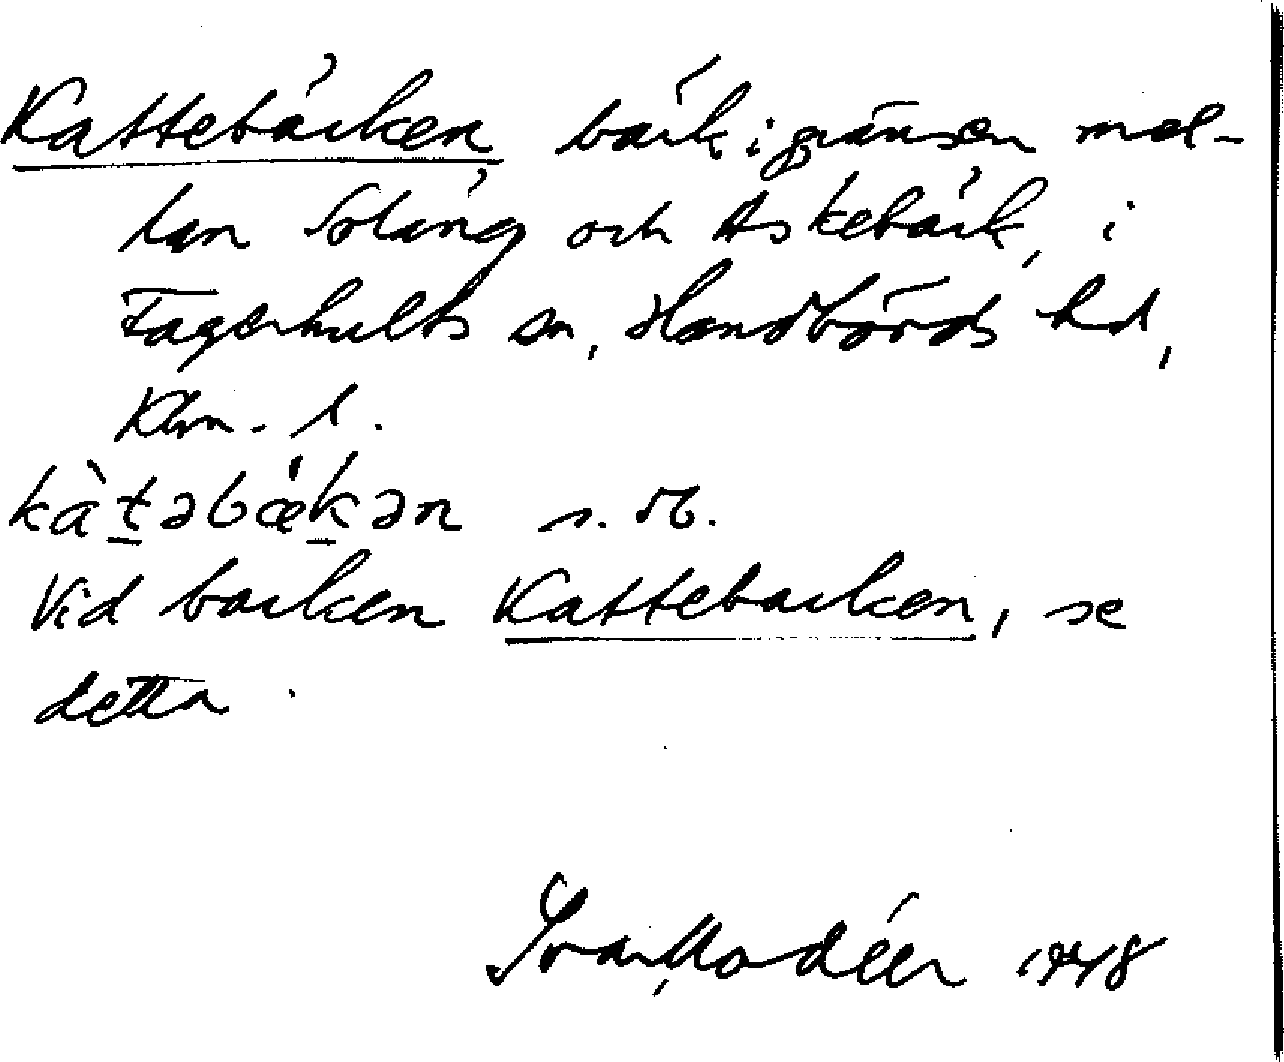 Kattebäcken bäck i gränsen mel-
lan Soläng och Askebäck, i
Fagerhults sn, Handbörds hd,
Klm. l.
kàt̠əbæ̀k̠ən
Vid backen Kattebacken, se
detta.
Ivar Modéer 1948